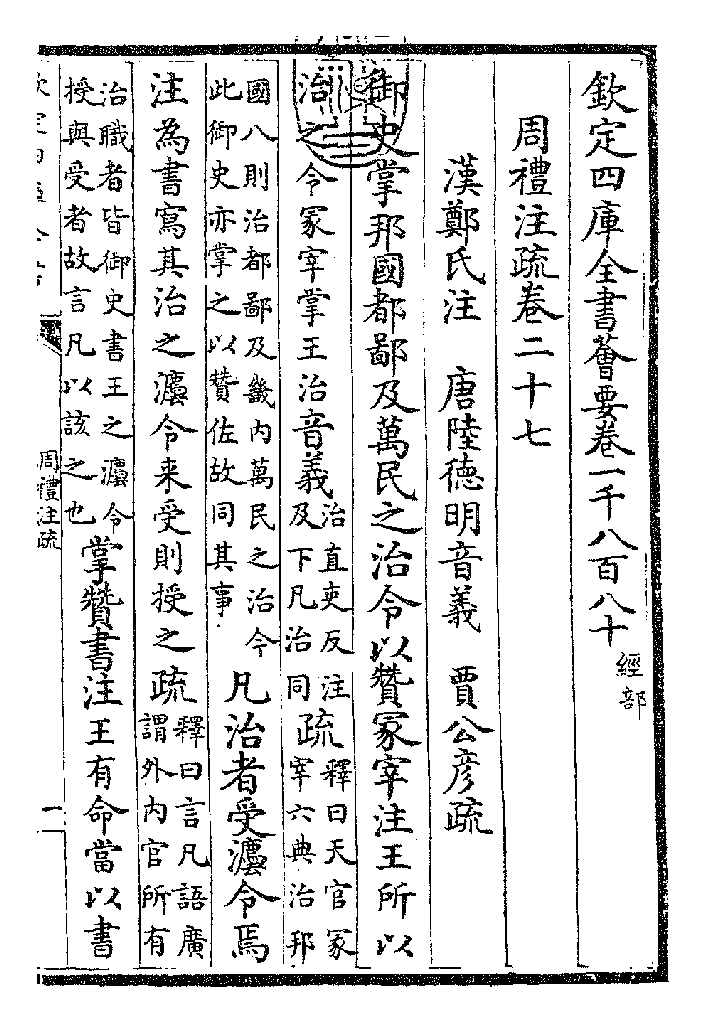 欽定四庫全書薈要卷一千八百八十 經部
周禮注疏卷二十七
漢鄭氏注 唐陸德明音義 賈公彦疏
御史掌邦國都鄙及萬民之治令以贊冢宰注王所以
治之令冢宰掌王治音義治直吏反注及下凡治同疏釋曰天官冢宰六典治邦
國八則治都鄙及畿内萬民之治今此御史亦掌之以贊佐故同其事凡治者受灋令焉
注為書寫其治之灋令来受則授之疏釋曰言凡語廣謂外内官所有
治職者皆御史書王之灋令授與受者故言凡以該之也掌贊書注王有命當以書
周禮注疏
一